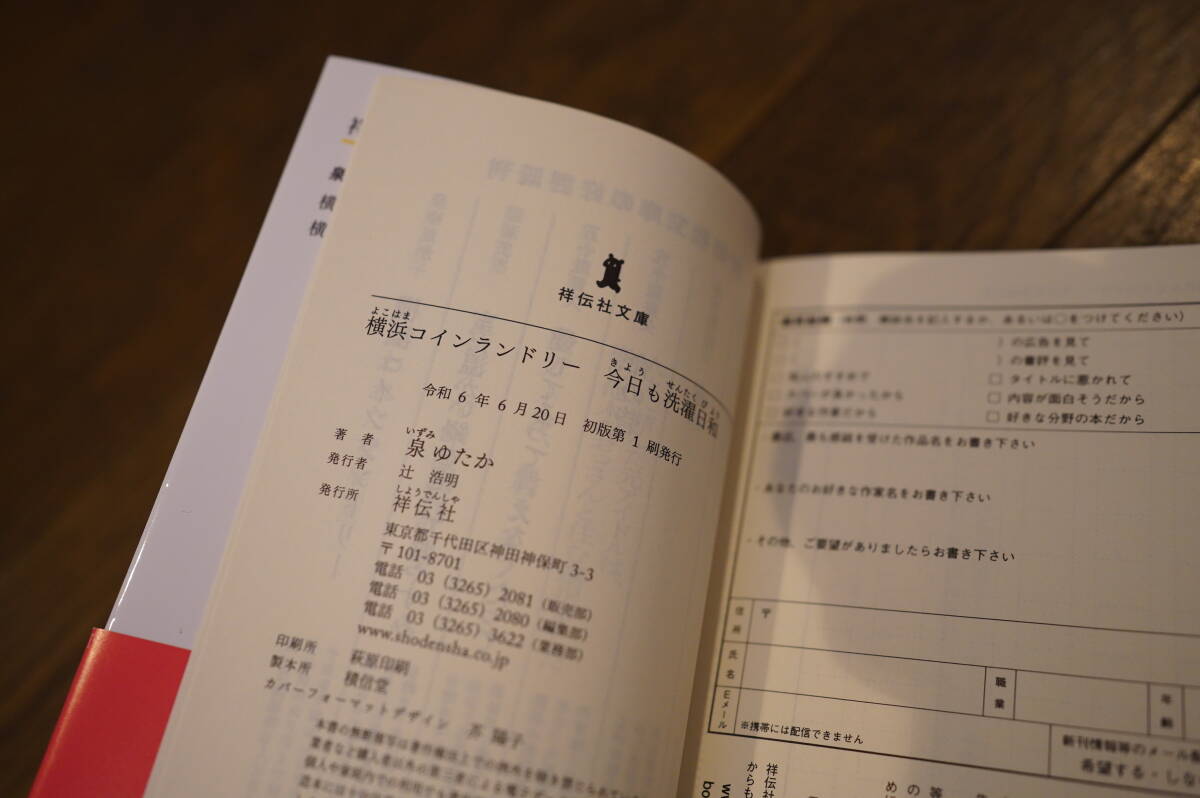 祥伝社文庫
横浜コインランドリー 今日も洗濯日和
よこはま
きょう
せんたくびより
令和6年6月20日 初版第1刷発行
著者 泉ゆたか
いずみ
発行者 辻 浩明
発行所 祥伝社
しょうでんしゃ
東京都千代田区神田神保町3-3
〒101-8701
電話 03(3265)2081(販売部)
電話 03(3265)2080(編集部)
電話 03(3265)3622(業務部)
www.shodensha.co.jp
印刷所 萩原印刷
製本所 積信堂
カバーフォーマットデザイン 芥 陽子
泉
横
横
あるいは○をつけてください)
)の広告を見て
)の書評を見て
□ タイトルに惹かれて
□ 内容が面白そうだから
□ 好きな分野の本だから
最近、最も感銘を受けた作品名をお書き下さい
・あなたのお好きな作家名をお書き下さい
・その他、ご要望がありましたらお書き下さい
住所
〒
氏名
職業
年齢
Eメール
※携帯には配信できません
新刊情報等のメール
希望する・しな
祥伝社
からも